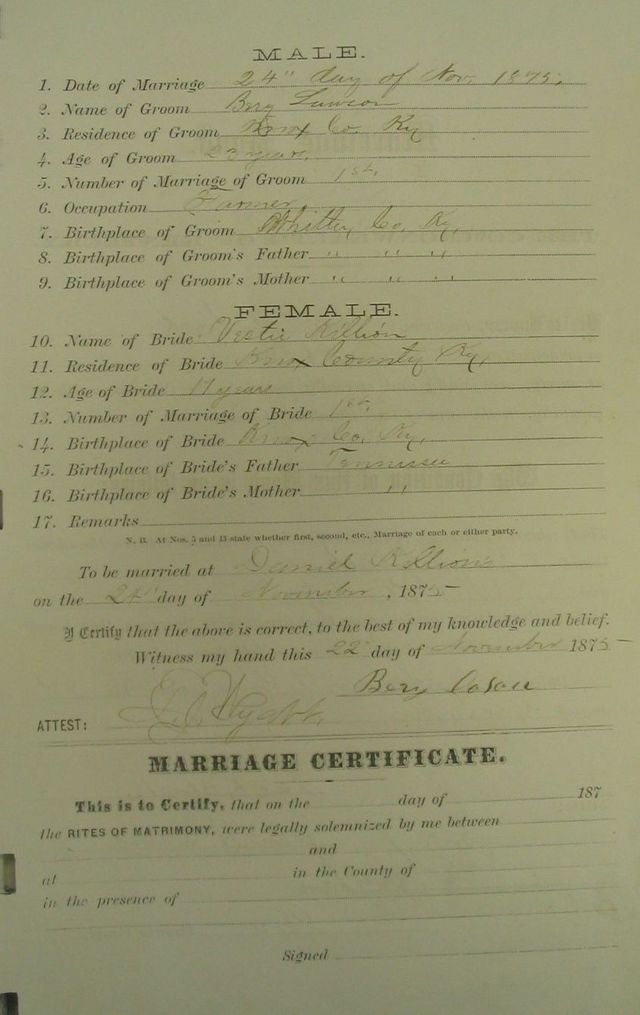 MALE.
1. Date of Marriage 24" day of Nov. 1875,
2. Name of Groom Bery Lawson
3. Residence of Groom Knox Co. Ky
4. Age of Groom 23 years,
5. Number of Marriage of Groom 1st,
6. Occupation Farmer,
7. Birthplace of Groom Whitley Co, Ky,
8. Birthplace of Groom's Father " " "
9. Birthplace of Groom's Mother " " "
FEMALE.
10. Name of Bride Killion
11. Residence of Bride Knox County Ky,
12. Age of Bride 17 years
13. Number of Marriage of Bride 1st,
14. Birthplace of Bride Knox Co, Ky,
15. Birthplace of Bride's Father Tennissee
16. Birthplace of Bride's Mother "
17. Remarks
N. B. At Nos. 5 and 13 state whether first, second, etc., Marriage of each or either party.
To be married at Daniel Killions
on the 24" day of November, 1875
I Certify that the above is correct, to the best of my knowledge and belief.
Witness my hand this 22 day of November 1875
Bery
ATTEST:
MARRIAGE CERTIFICATE.
This is to Certify, that on the day of 187
the RITES OF MATRIMONY, were legally solemnized by me between
and
at in the County of
in the presence of
Signed